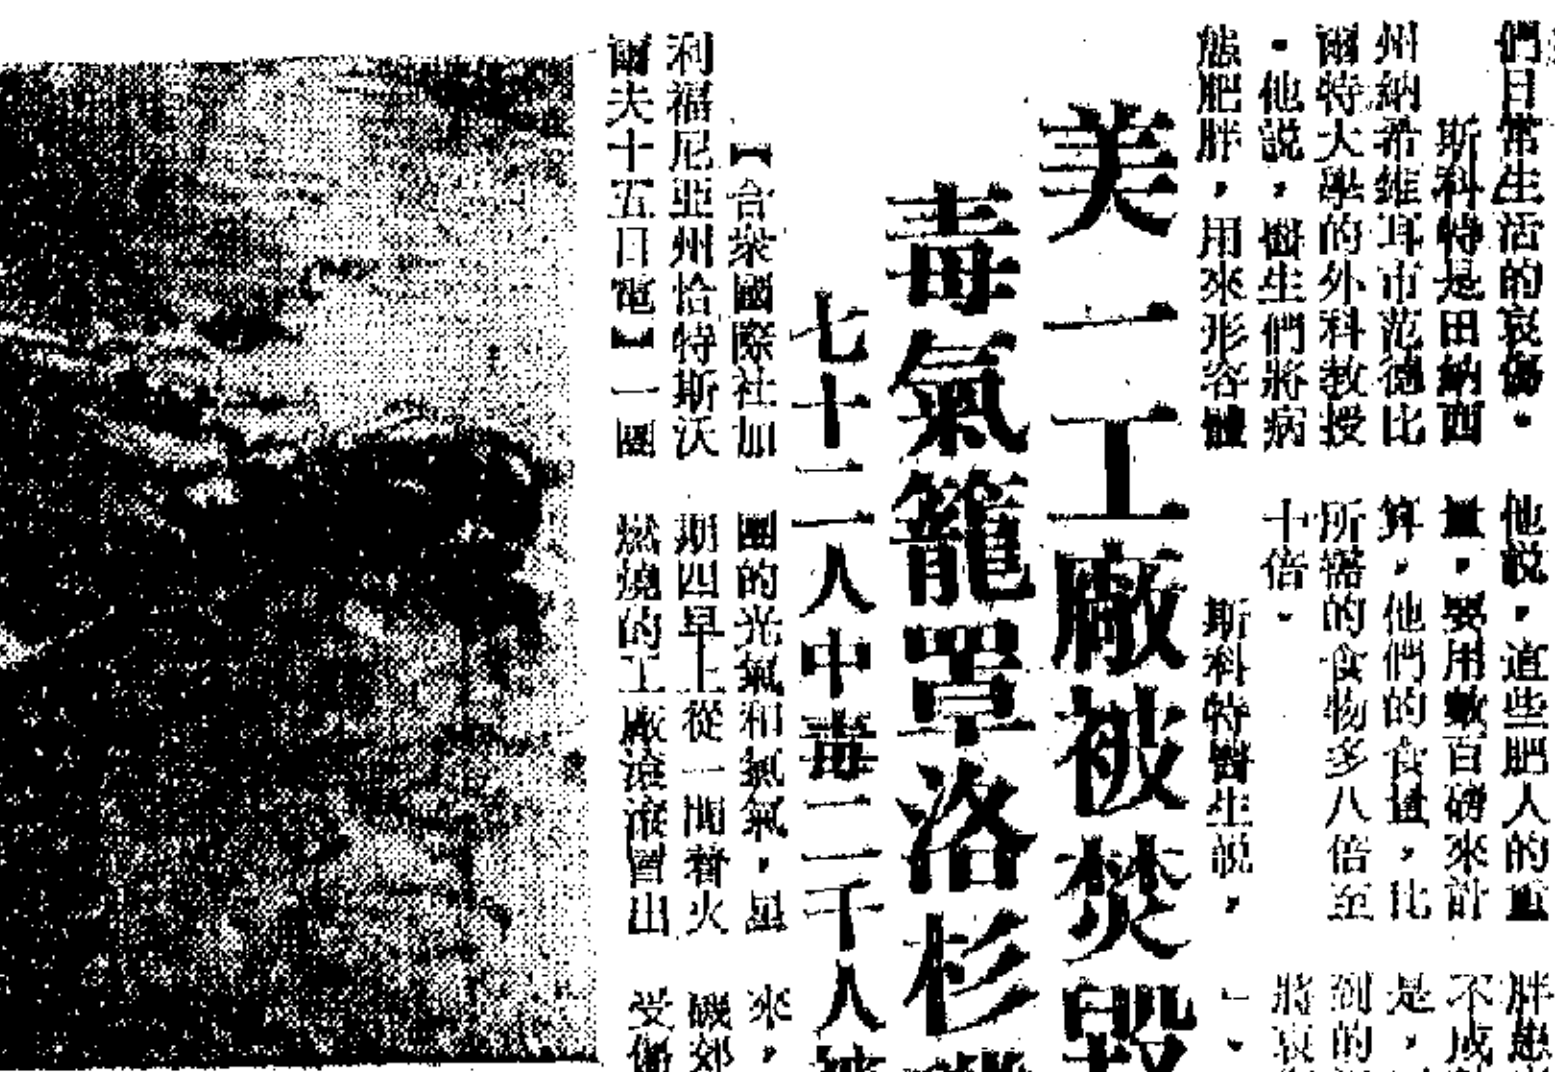 們日常生活的哀傷。
斯科特是田納西
州納希維耳市范德比
爾特大學的外科教授
。他說，醫生們將病
態肥胖，用來形容體
他說，這些肥人的重
量，要用數百磅來計
算，他們的食量，比
所需的食物多八倍至
十倍。
斯科特醫生說，
胖患
不成
是，
到的
將哀
美一工廠被焚毀
毒氣籠罩洛杉
七十二人中毒二千人被
【合衆國際社加
利福尼亞州恰特斯沃
爾夫十五日電】一團
團的光氣和氯氣，星
期四早上從一間着火
燃燒的工廠滾滾冒出
來，
磯郊
受傷